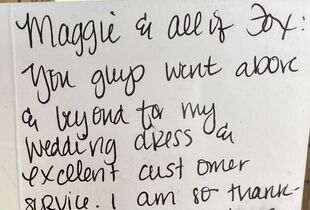 Maggie & all of Fox:
You guys went above
& beyond for my
wedding dress &
excellent customer
service. I am so thank-